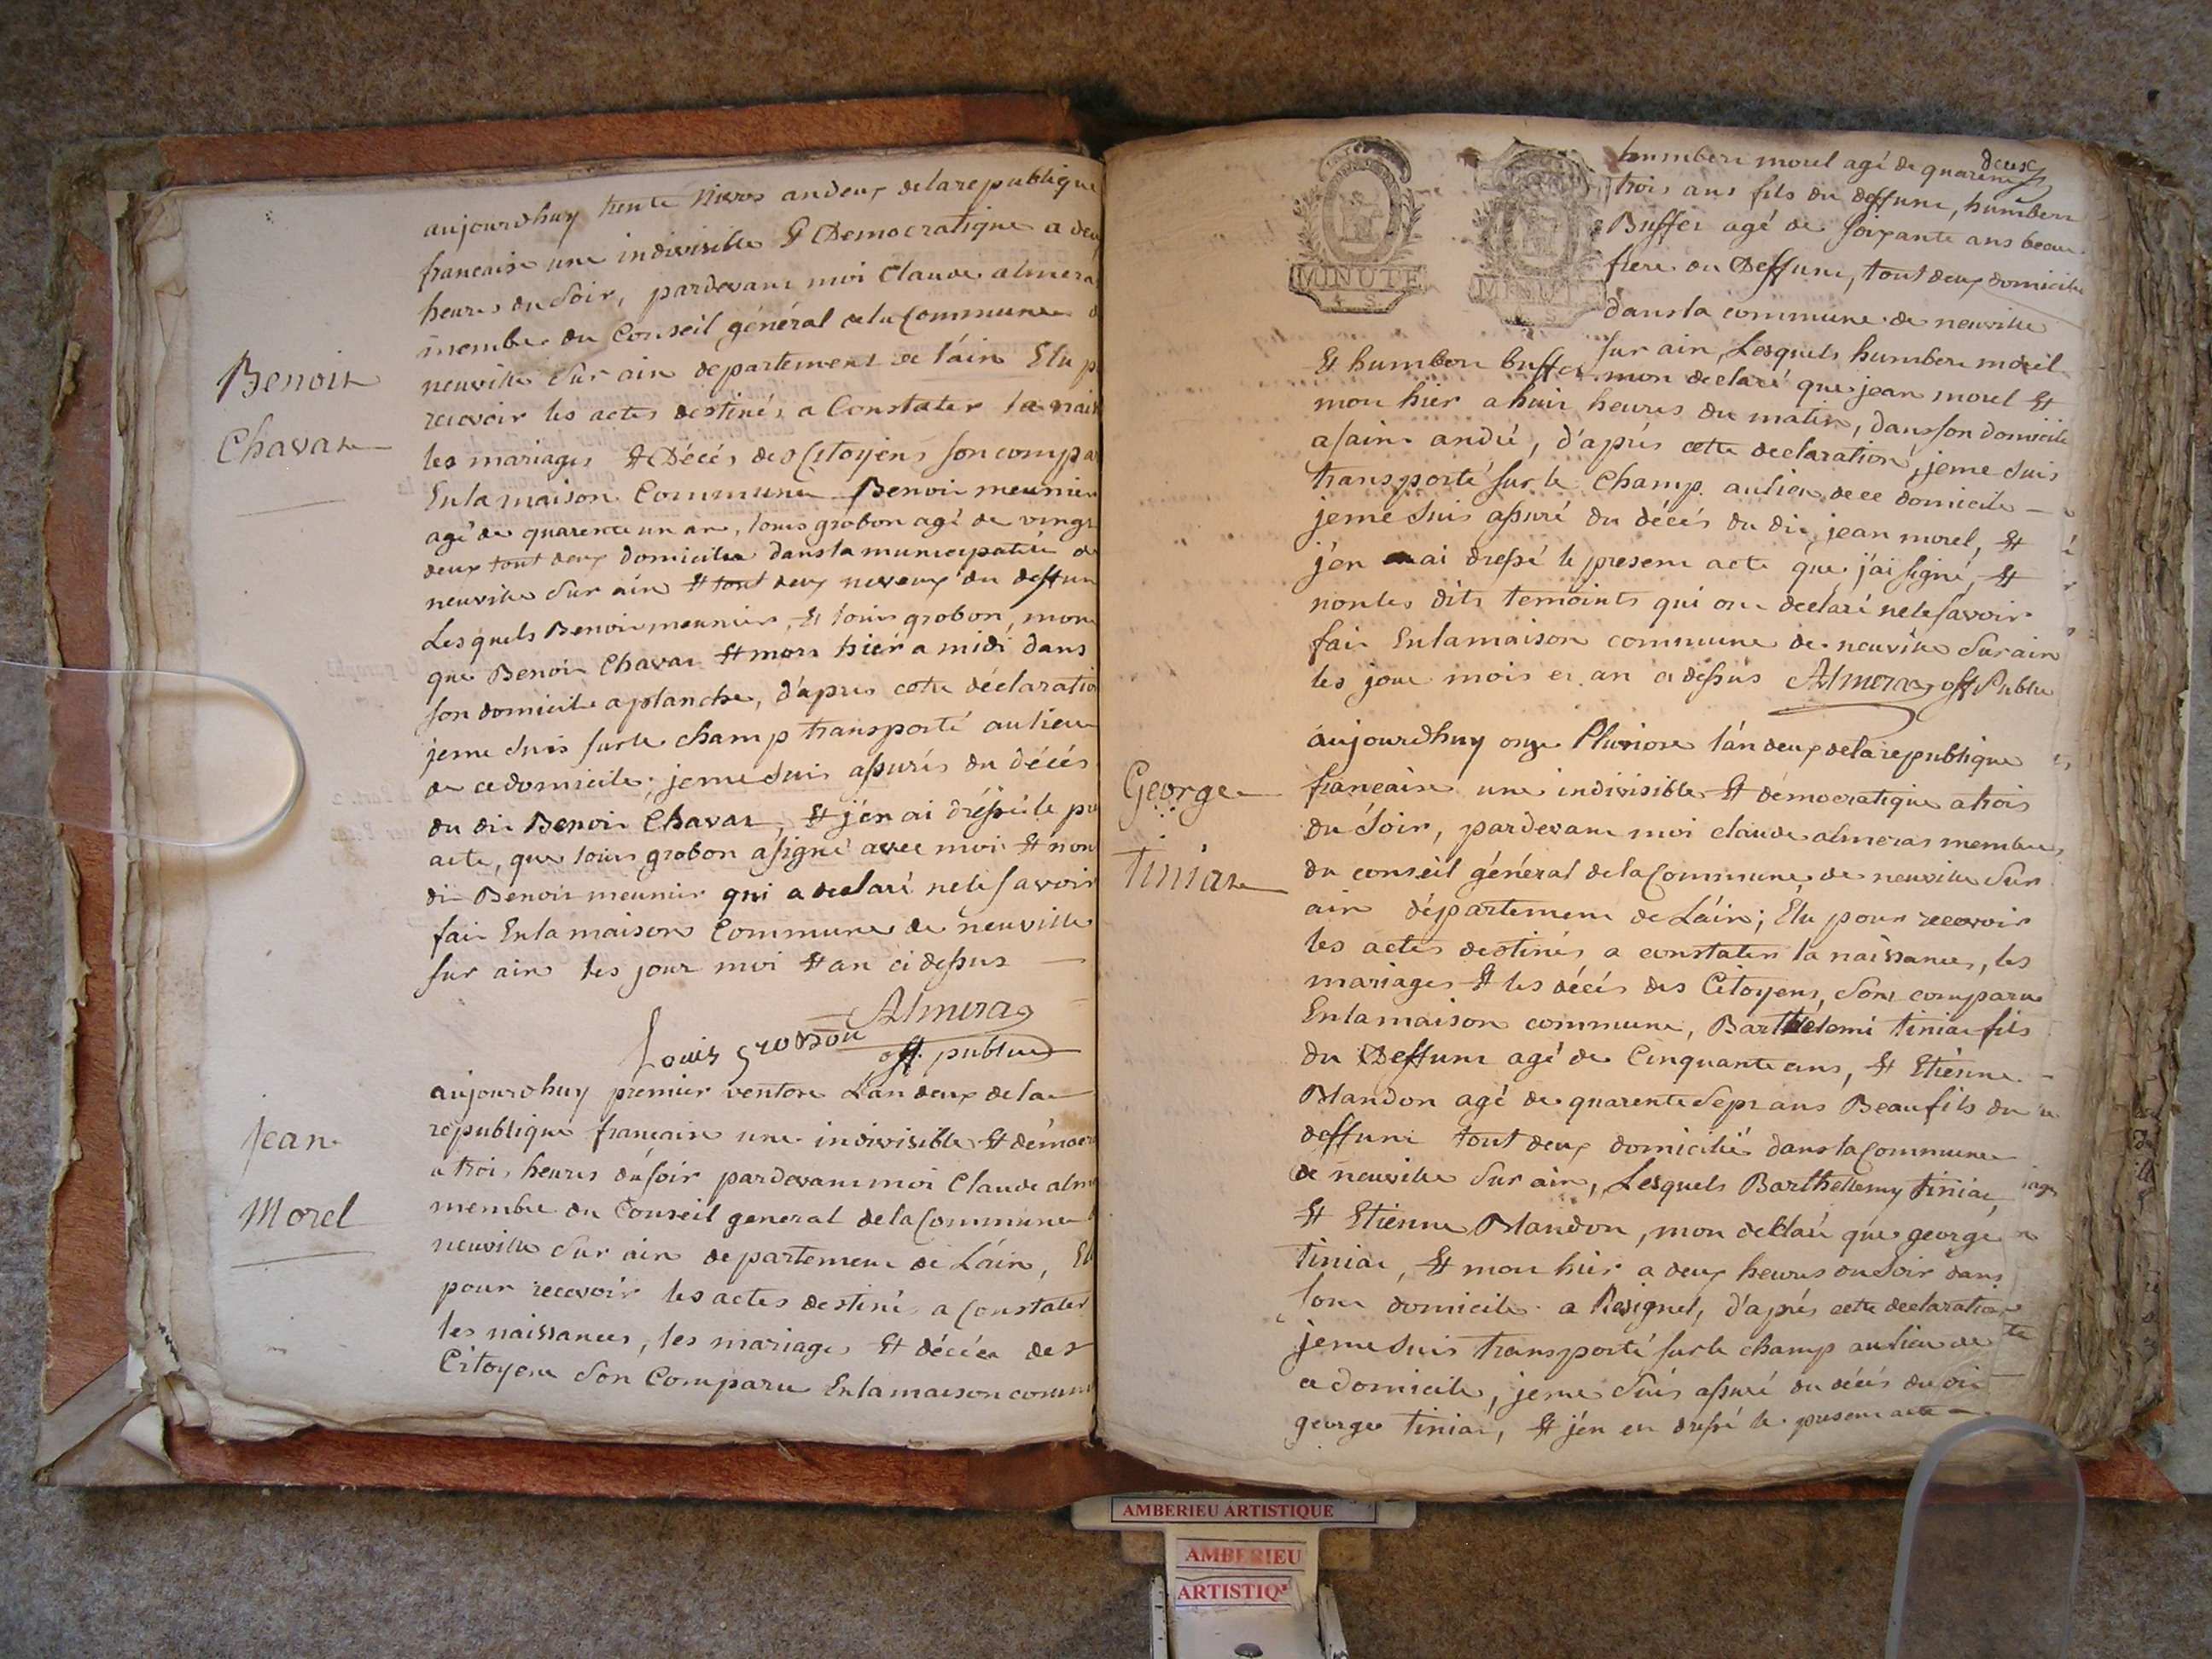 aujourdhuy trente Nivos an deux de la republique
francaise une indivisible & Democratique a deux
heures du Soir, pardevant moi Claude almeras
membre du Conseil général de la Commune d
neuville Sur ain departement de l'ain Elu p
recevoir les actes destinés a Constater la nais
les mariages Et Décés des Citoyens son compa
En la maison Commune Benoit meunier
agé de quarente un an, louis grobon agé de vingt
deux tout deux domicilie dans la municipatité de
neuville Sur ain Et tout deux neveux du deffun
Lesquels Benoit meunier, Et louis grobon, mon
que Benoit Chavat Et mort hiér a midi dans
son domicile a planche, d'apres cette déclaratio
jeme Suis sur le champ transporté au lieu
de ce domicile, jeme Suis assurés du décés
du dit Benoit Chavat, Et j'en ai dréssé le pre
acte, que louis grobon a signé avec moi Et non
dit Benoit meunier qui a declaré nele savoir
fait En la maison Commune de neuville
sur ain les jour moi Et an ci dessus
Almeras
Louis grobon off. public
Benoit
Chavat
aujourdhuy premier ventose L'an deux de la
republique francaise une indivisible Et démocr
a trois heures du soir pardevant moi Claude alm
membre du Conseil general de la Commune
neuville Sur ain departement de L'ain, El
pour recevoir les actes destinés a Constater
les naissances, les mariages Et décées des
Citoyens Son Comparu En la maison comm
Jean
Morel
MINUTE
4. S.
MINUTE
S.
humbert morel agé de quarente deux
trois ans fils du deffunt, humbert
Buffet agé de soixante ans beau
frere du Deffunt, tout deux domicilie
dans la commune de neuville
sur ain, Lesquels humbert morel
Et humbert buffet mon declaré que jean morel Et
mort hier a huit heures du matin, dans son domicile
a saint andré, d'aprés cette declaration, jeme suis
transporté sur le Champ au lieu de ce domicile
jeme Suis assuré du décés du dit jean morel, Et
j'en ai dressé le present acte que j'ai signé, Et
non les dits temoints qui ont declaré nele savoir
fait En la maison commune de neuville Sur ain
les jour mois et an ci dessus Almeras off Public
aujourdhuy onze Pluviose l'an deux de la republique
francaise une indivisible Et démocratique a trois
du Soir, pardevant moi claude almeras membre
du conseil général de la Commune de neuville Sur
ain département de L'ain; Elu pour recevoir
les actes destinés a constater la naissances, les
mariages Et les décés des Citoyens, Sont comparu
En la maison commune, Barthélemi tiniat fils
du Deffunt agé de Cinquante ans, Et Etienne
Blandon agé de quarente Sept ans Beaufils du
deffunt tout deux domicilié dans la Commune
de neuville Sur ain, Lesquels Barthellemy tiniat,
Et Etienne Blandon, mon declaré que george
tiniat, Et mort hier a deux heures du Soir dans
son domicile a Resignel, d'aprés cette declaration
jeme Suis transporté sur le champ au lieu de
ce domicile, jeme Suis assuré du décés du dit
george tiniat, Et j'en en dressé le present acte
George
tiniat
AMBERIEU ARTISTIQUE
AMBERIEU
ARTISTIQ